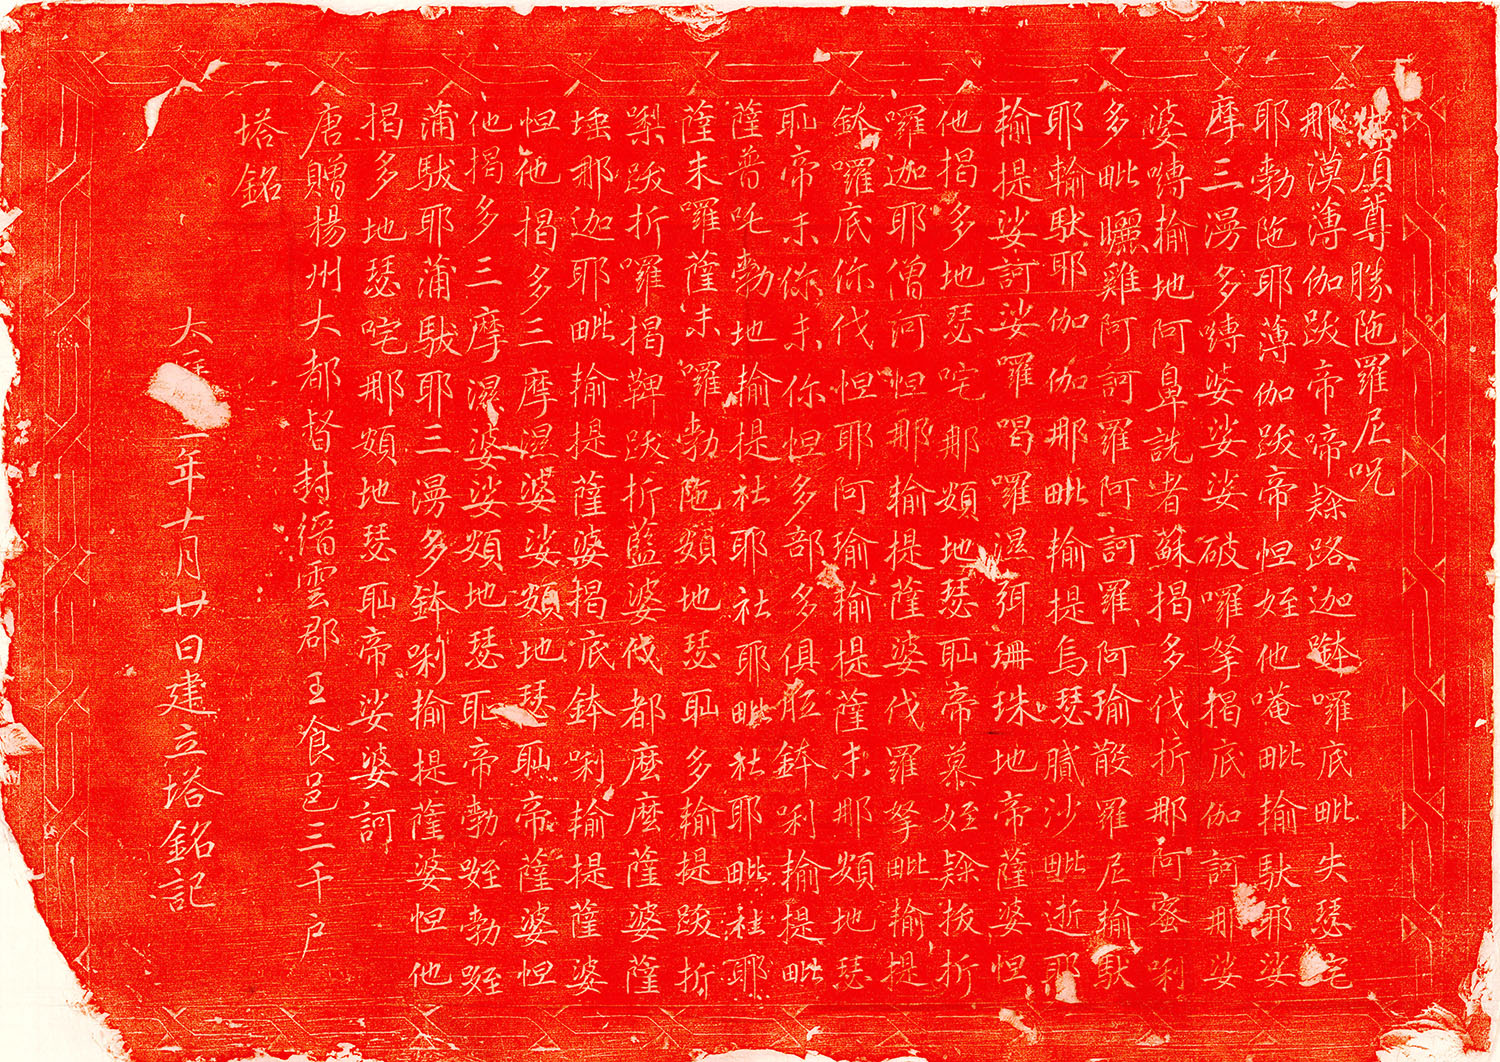 佛頂尊勝陁羅尼呪
那漠薄伽跋帝啼㘑路迦鉢囉底毗失瑟宅
耶勃陁耶薄伽跋帝怛姪他唵毗輸馱耶娑
摩三湯多嚩婆娑娑破囉拏揭底伽訶那娑
婆嚩輸地阿鼻詵者蘇揭多伐折那阿蜜唎
多毗曬雞阿訶羅阿訶羅阿瑜散羅尼輸馱
耶輸馱耶伽伽那毗輸提烏瑟膩沙毗逝耶
輸提娑訶娑囉喝囉濕弭珊珠地帝薩婆怛
他揭多地瑟咤那頞地瑟耻帝慕姪㘑拔折
囉迦耶僧訶怛那輸提薩婆伐羅拏毗輸提
鉢囉底你伐怛耶阿瑜輸提薩末那頞地瑟
耻帝末你末你怛多部多俱胝鉢唎輸提毗
薩普吒勃地輸提社耶社耶毗社耶毗社耶
薩末囉薩末囉勃陁頞地瑟耻多輸提跋折
㘑跋折囉揭鞞跋折藍婆伐都麽麽薩婆薩
埵那迦耶毗輸提薩婆揭底鉢唎輸提薩婆
怛他揭多三摩濕婆娑頞地瑟耻帝薩婆怛
他揭多三摩濕婆娑頞地瑟耻帝勃𨁝勃𨁝
蒲馱耶蒲馱耶三湯多鉢唎輸提薩婆怛他
揭多地瑟咤那頞地瑟耻帝娑婆訶
唐贈楊州大都督封縉雲郡王食邑三千户
塔銘
大二年十月廿日建立塔銘記